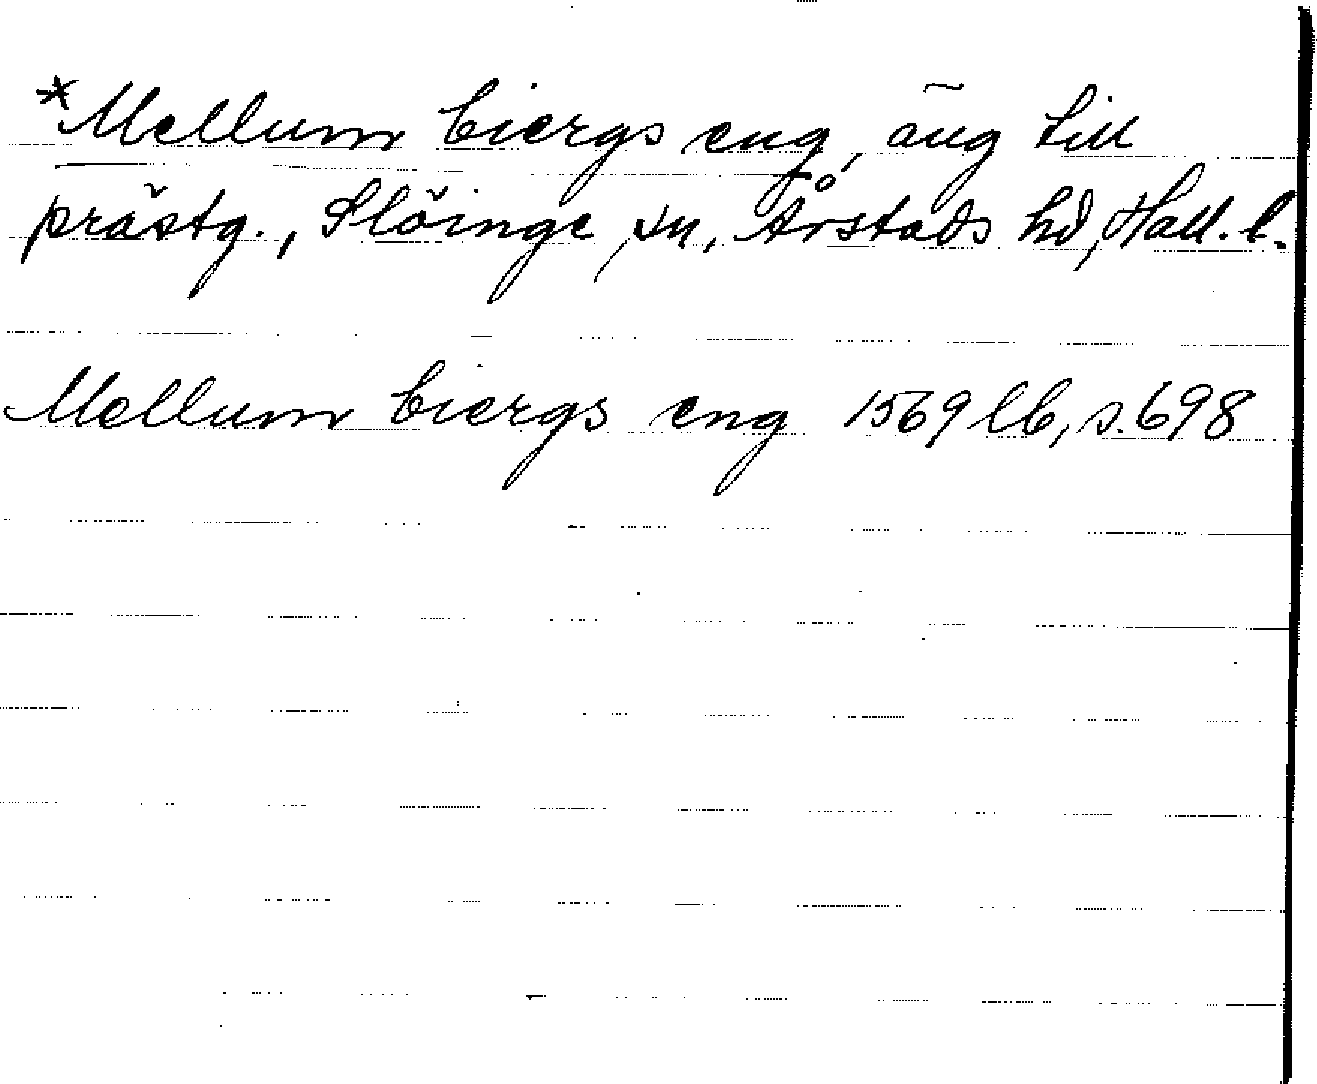 *Mellum biergs eng, äng till
prästg., Slöinge sn, Årstads hd, Hall. l.
Mellum biergs eng 1569 lb, s. 698